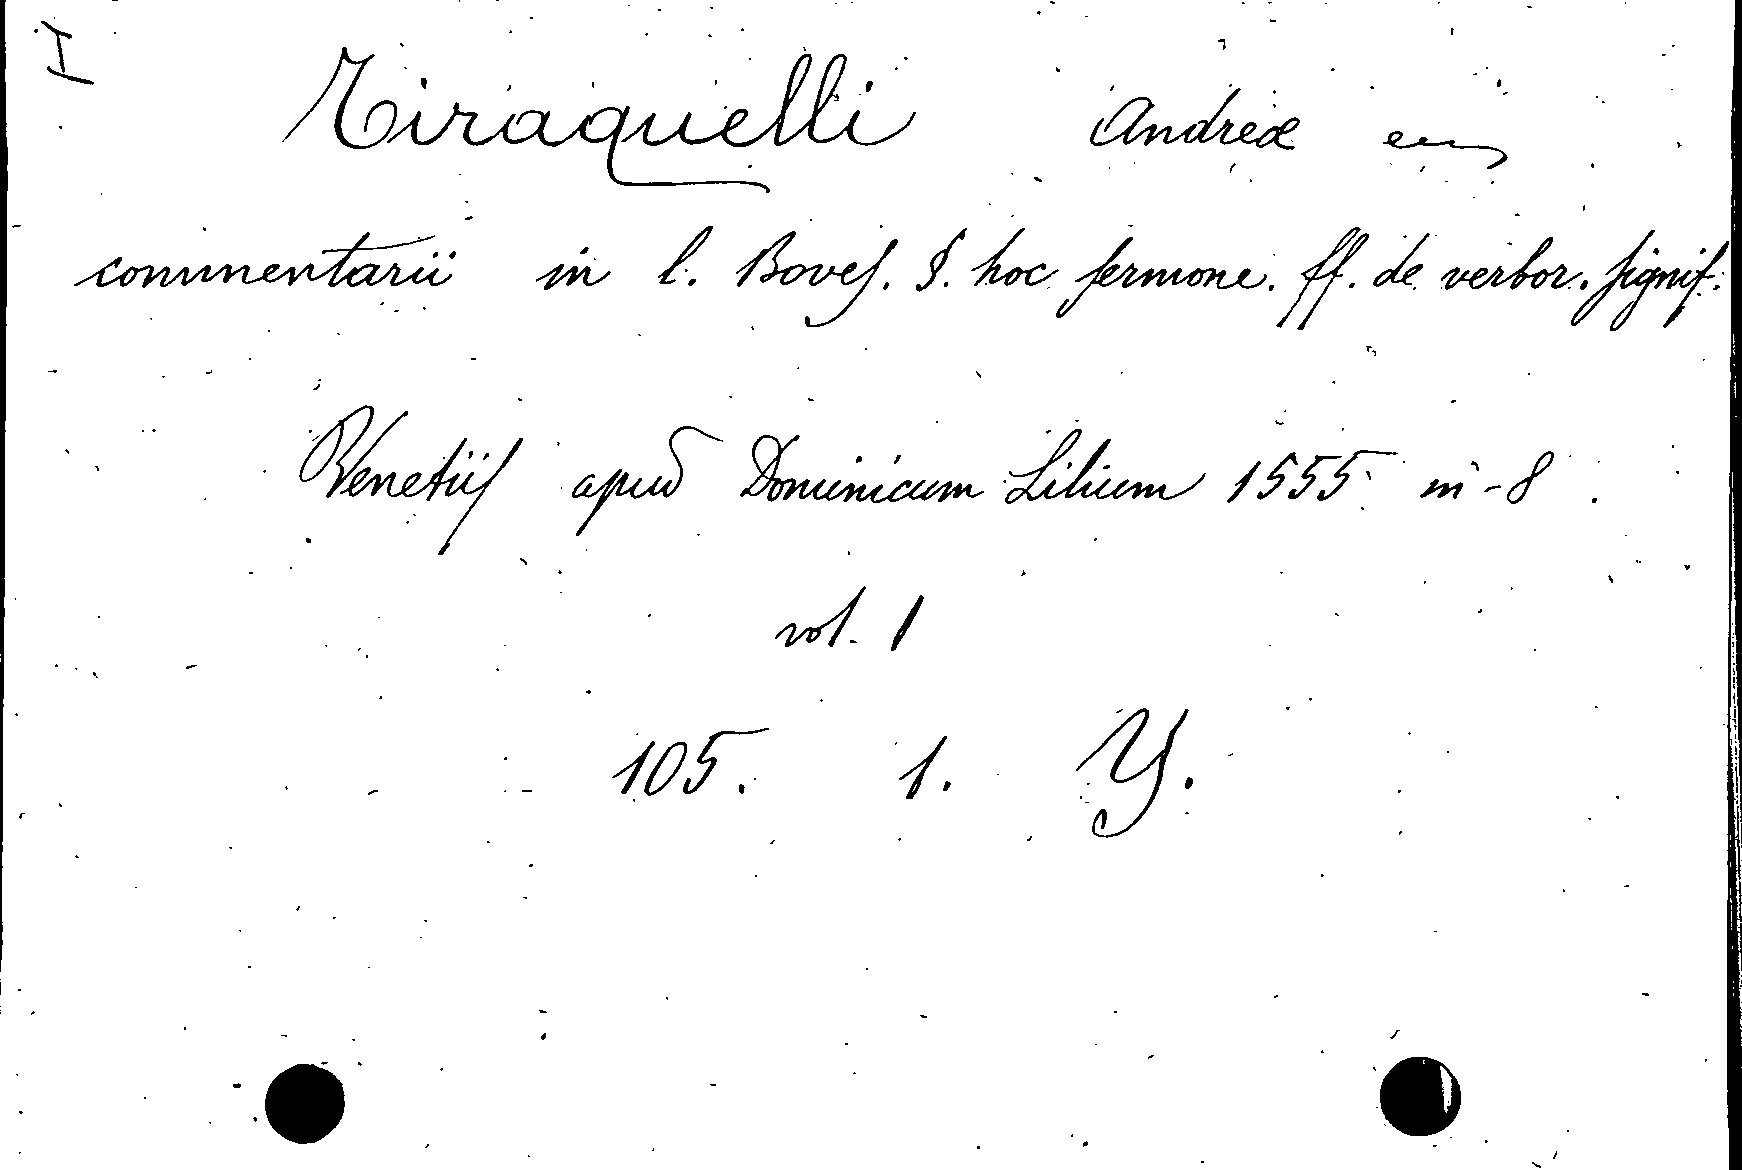 I
Tiraquelli Andreæ
commentarii in l. Boves. §. hoc sermone. ff. de verbor. signif.
Venetiis apud Dominicum Lilium 1555 in-8.
vol. 1
105. 1. Y.